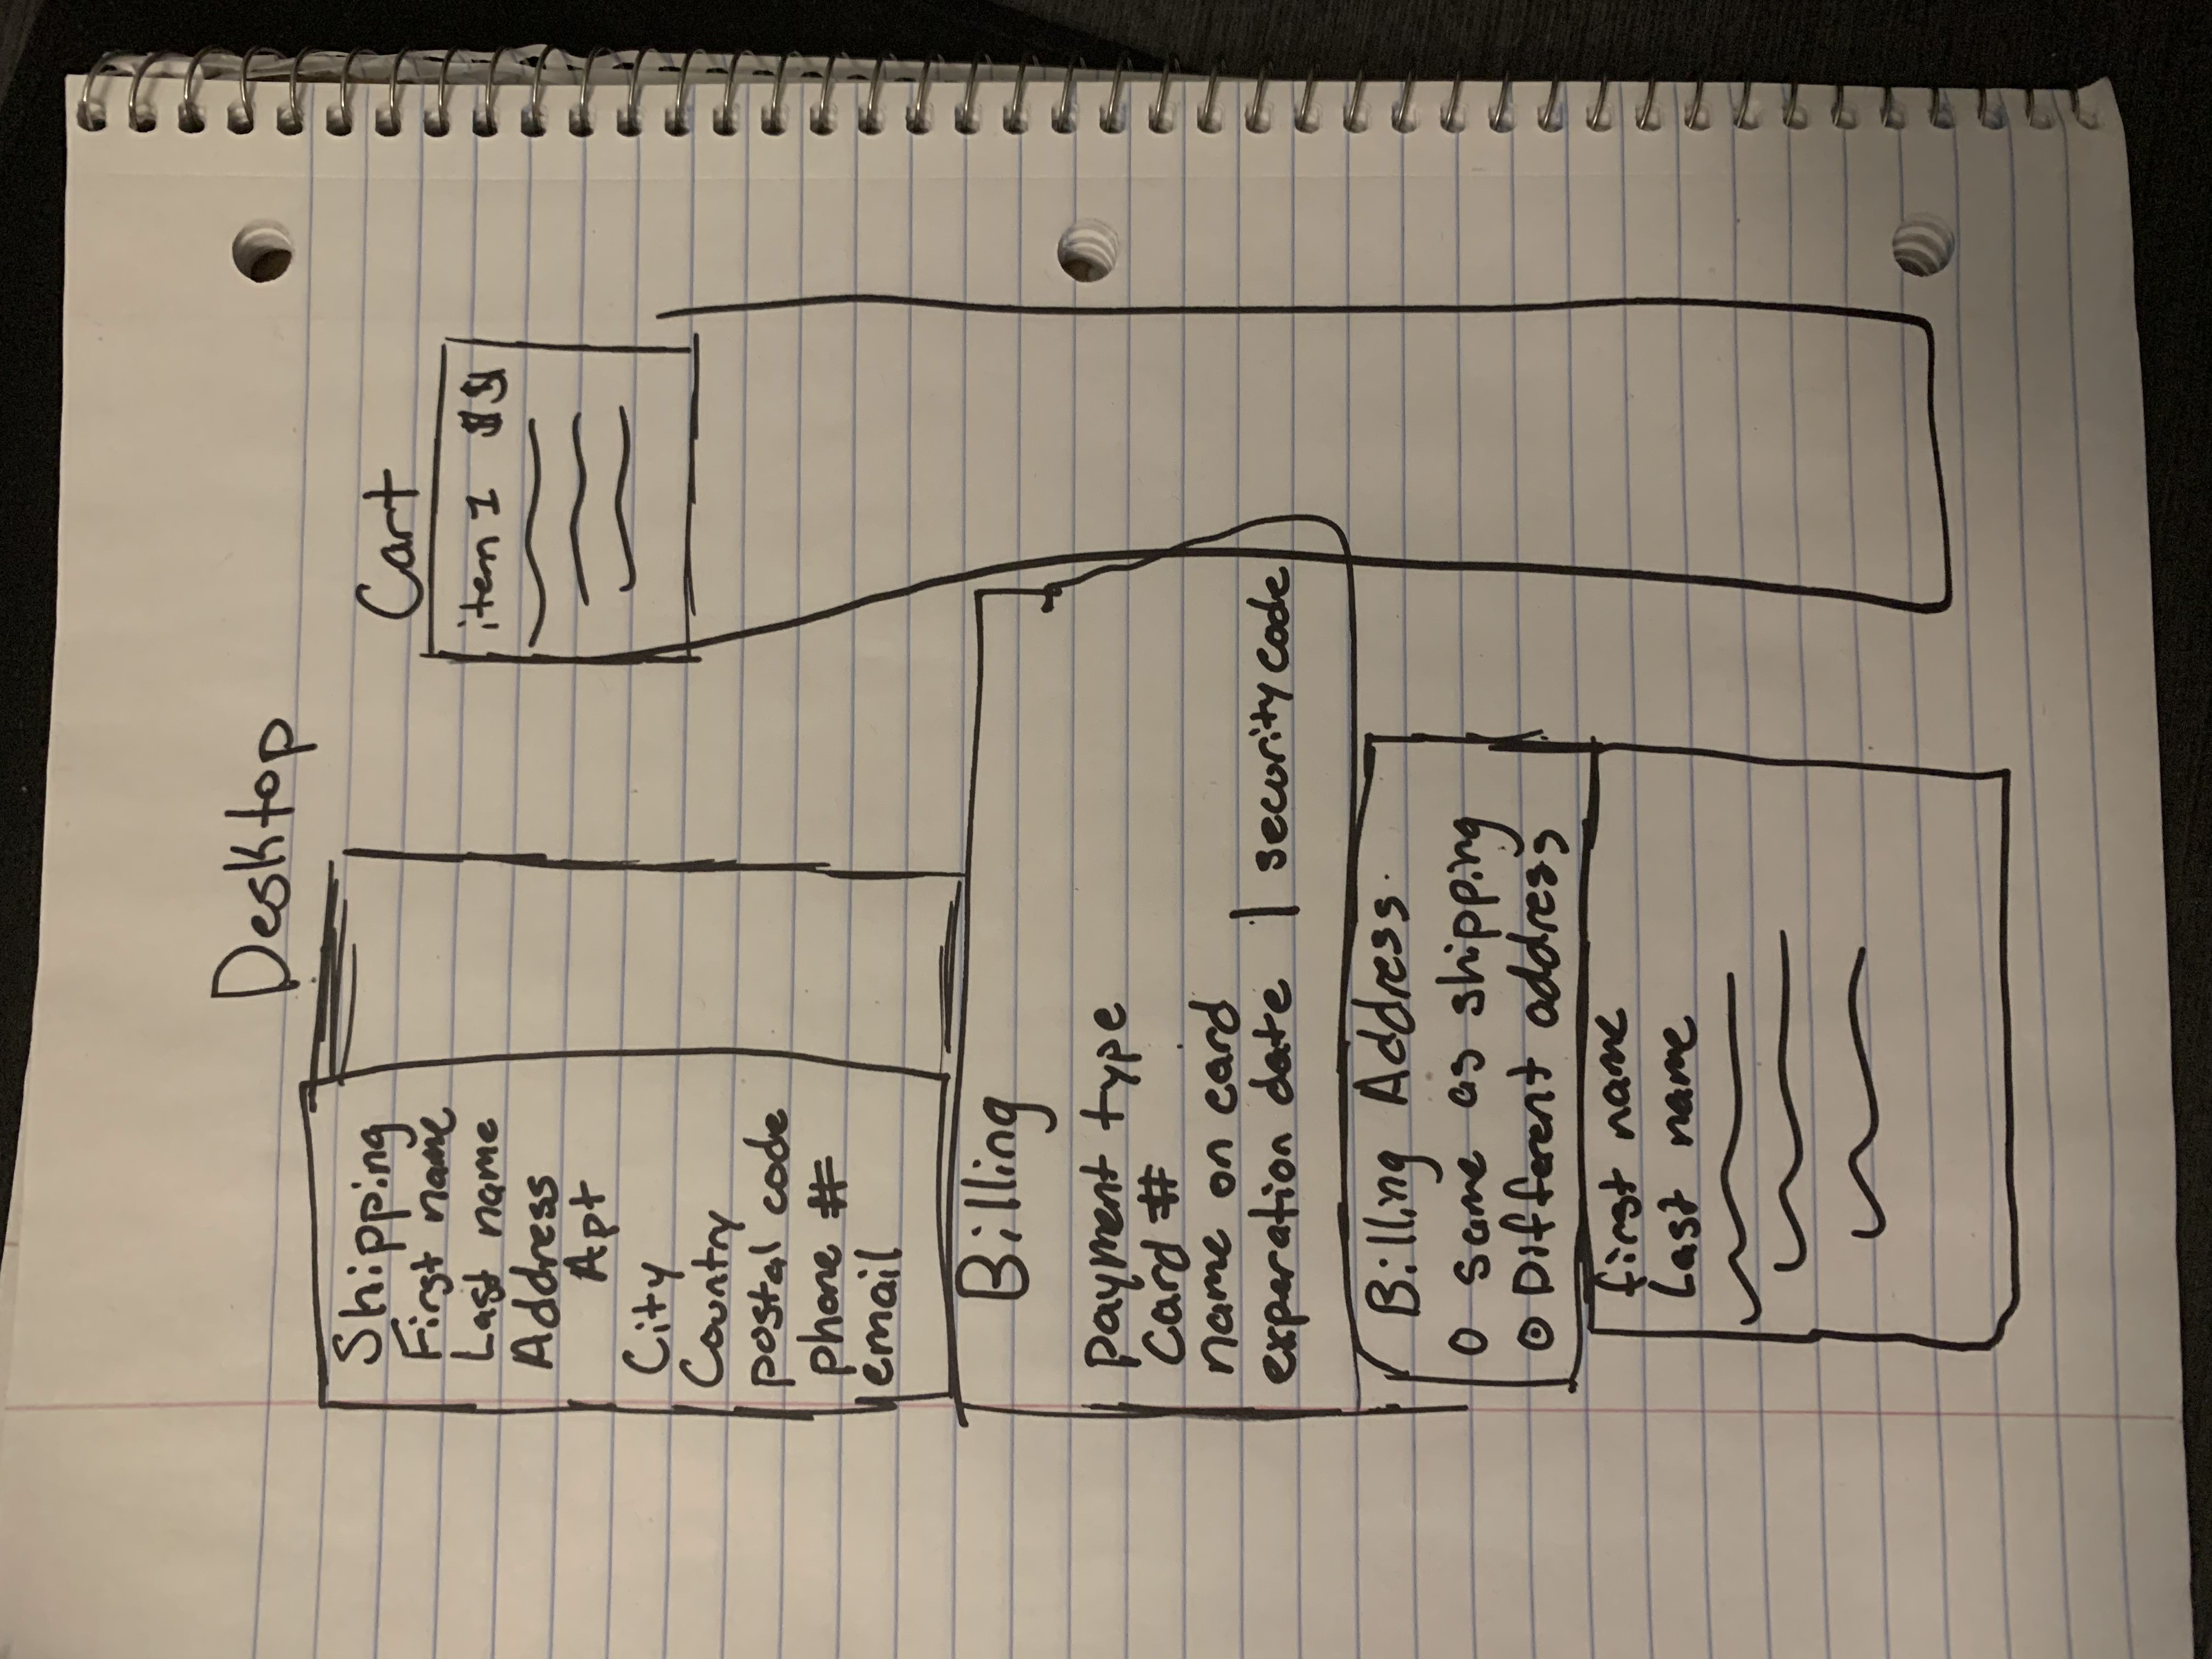 Desktop
Shipping
First name
Last name
Address
Apt
City
Country
postal code
phone #
email
Cart
item 1 $$
Billing
payment type
Card #
name on card
experation date | security code
Billing Address
O same as shipping
⊙ Different address
first name
Last name